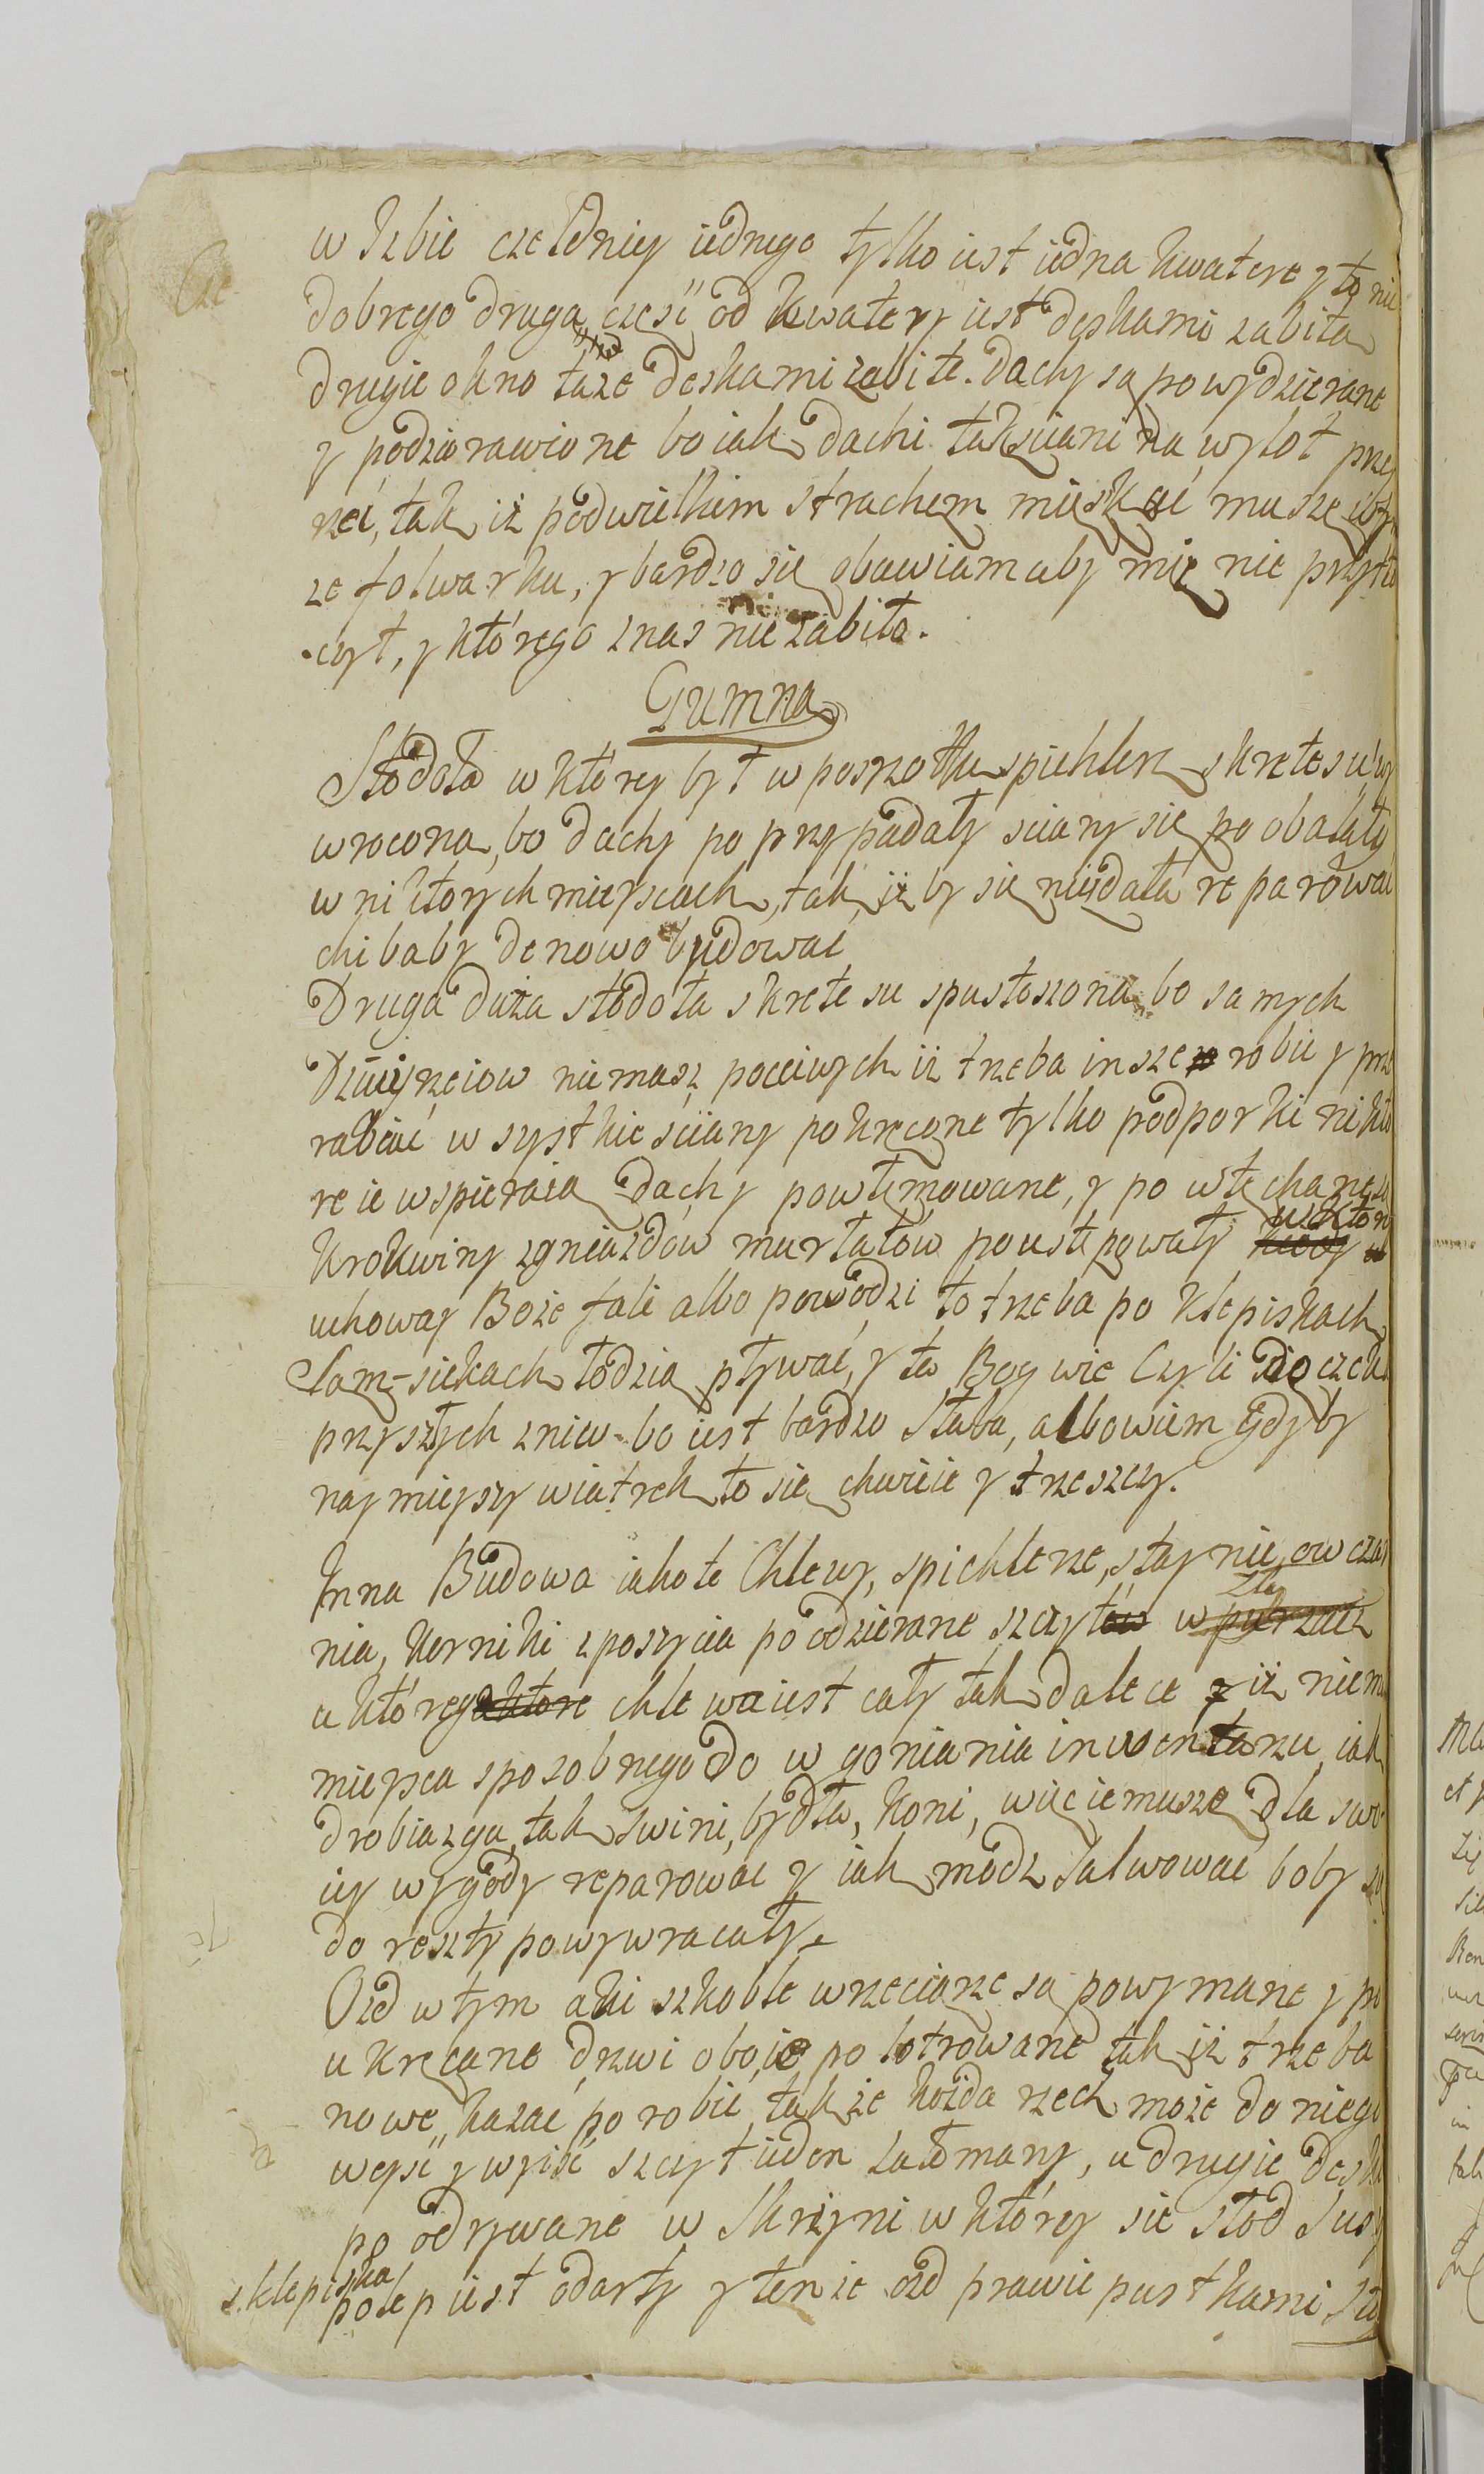 w Izbie czeldniey iednego tylko iest iedna kwatere y to nie
dobrego druga częsc od kwatery iest deskami zabita
drugie okno taże deskami zabite. dachy są powydzierane
y podziorawione bo iak dachi tak sciani na wylot przey
rzeć, tak iż pod wielkim strachem mieskać muszę w tym
ze folwarku, y bardzo się obawiam aby mię nie przytło
czył, y którego z nas nie zabiło.
Gumna
Stodoła w którey był w poszrotku spichlerz skretesu wy
wrocona, bo dachy poprzypadały sciany się poobalały
w niktorych mieyscach, tak, iż by się nie dała reparować
chibaby denowo budować
Druga duża stodoła skretesu spustoszona bo samych
Dzwiyrzciow niemasz poćciwych iż trzeba insze robić y prze
rabiać wsystkie sciany pokręcone tylko podporki nikto
re ie wspieraią dachy powłymowane, y powstechane są
Krokwiny z gniazdów murłatów poustępowały w ktory
uchoway Boże fali albo powodzi to trzeba po klepiskach
sam-siekach łodzią pływać, y ta Bog wie Czyli doczeka
przyszłych zniw bo iest bardzo słaba, albowiem gdyby
naymieyszy wiatrek to się chwieie y trzeszczy.
Inna Budowa iakoto Chlewy, spichlerze, staynie, owczar
nia, kurniki z poszycia poodzierane szczyty
u którego chlewa iest cały tak dalece iż niema
mieysca sposobnego do wgoniania inwentarzu, iak
drobiazgu, tak swini, bydła, koni, więc ie musze dla swo
iey wygody reparować y iak módz salwować boby się
do reszty powywracały.
Ozd w tym aki szkoble wrzeciądze są powymane y po
ukręcane, drzwi oboie polotrowane tak iż trzeba
nowe kazać porobić, tak że kożda rzecz może do niego
weyść y wyiść szczyt ieden załomany, u drugie deski
poodrywane w skrzyni w którey sie słod susy
s. klepiska
polep iest odarty y tenże ozd prawie pustkami stoy